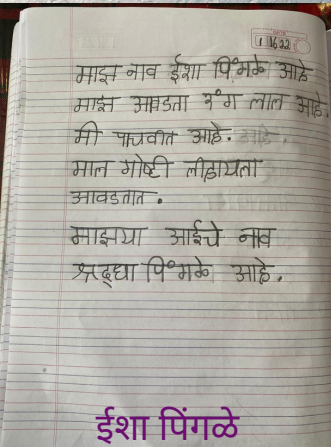 1 16 22
माझ नाव ईशा पिंगळे आहे
माझ आवडता रंग लाल आहे.
मी पाचवीत आहे.
माल गोष्टी लीहायला
आवडतात.
माझया आईचे नाव
श्रद्घा पिंगळे आहे.
ईशा पिंगळे